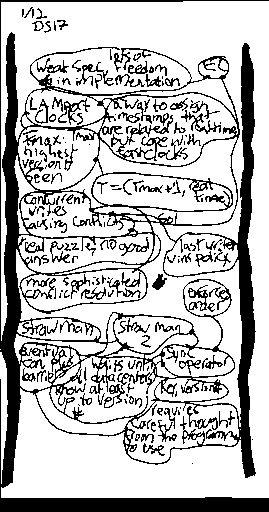 1/12
DS17
Weak Spec, lots of
freedom
in implementation
EC
LAMport
Clocks
a way to assign
timestamps that
are related to realtime
but cope with
Tmax:
highest
version #
seen
T = (Tmax+1, real
time)
Concurrent
writes
causing conflicts
real puzzle, no good
answer
last writer
wins policy
more sophisticated
conflict resolution
order
Straw man
Straw man
2
eventual
con plus
barrier
waits until
all datacenters
know at least
up to version
#
Sync
operator
Key, version #
requires
careful thought
from the programmer
to use